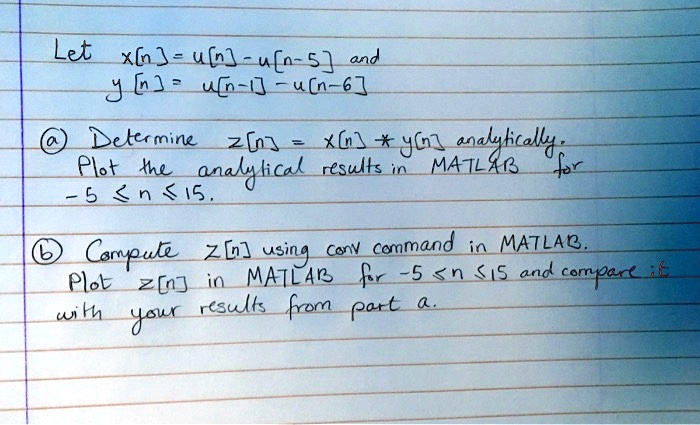 Let x[n] = u[n] - u[n-5] and
y[n] = u[n-1] - u[n-6]
(a) Determine z[n] = x[n] * y[n] analytically.
Plot the analytical results in MATLAB for
-5 ≤ n ≤ 15.
(b) Compute z[n] using conv command in MATLAB.
Plot z[n] in MATLAB for -5 ≤ n ≤ 15 and compare it
with your results from part a.